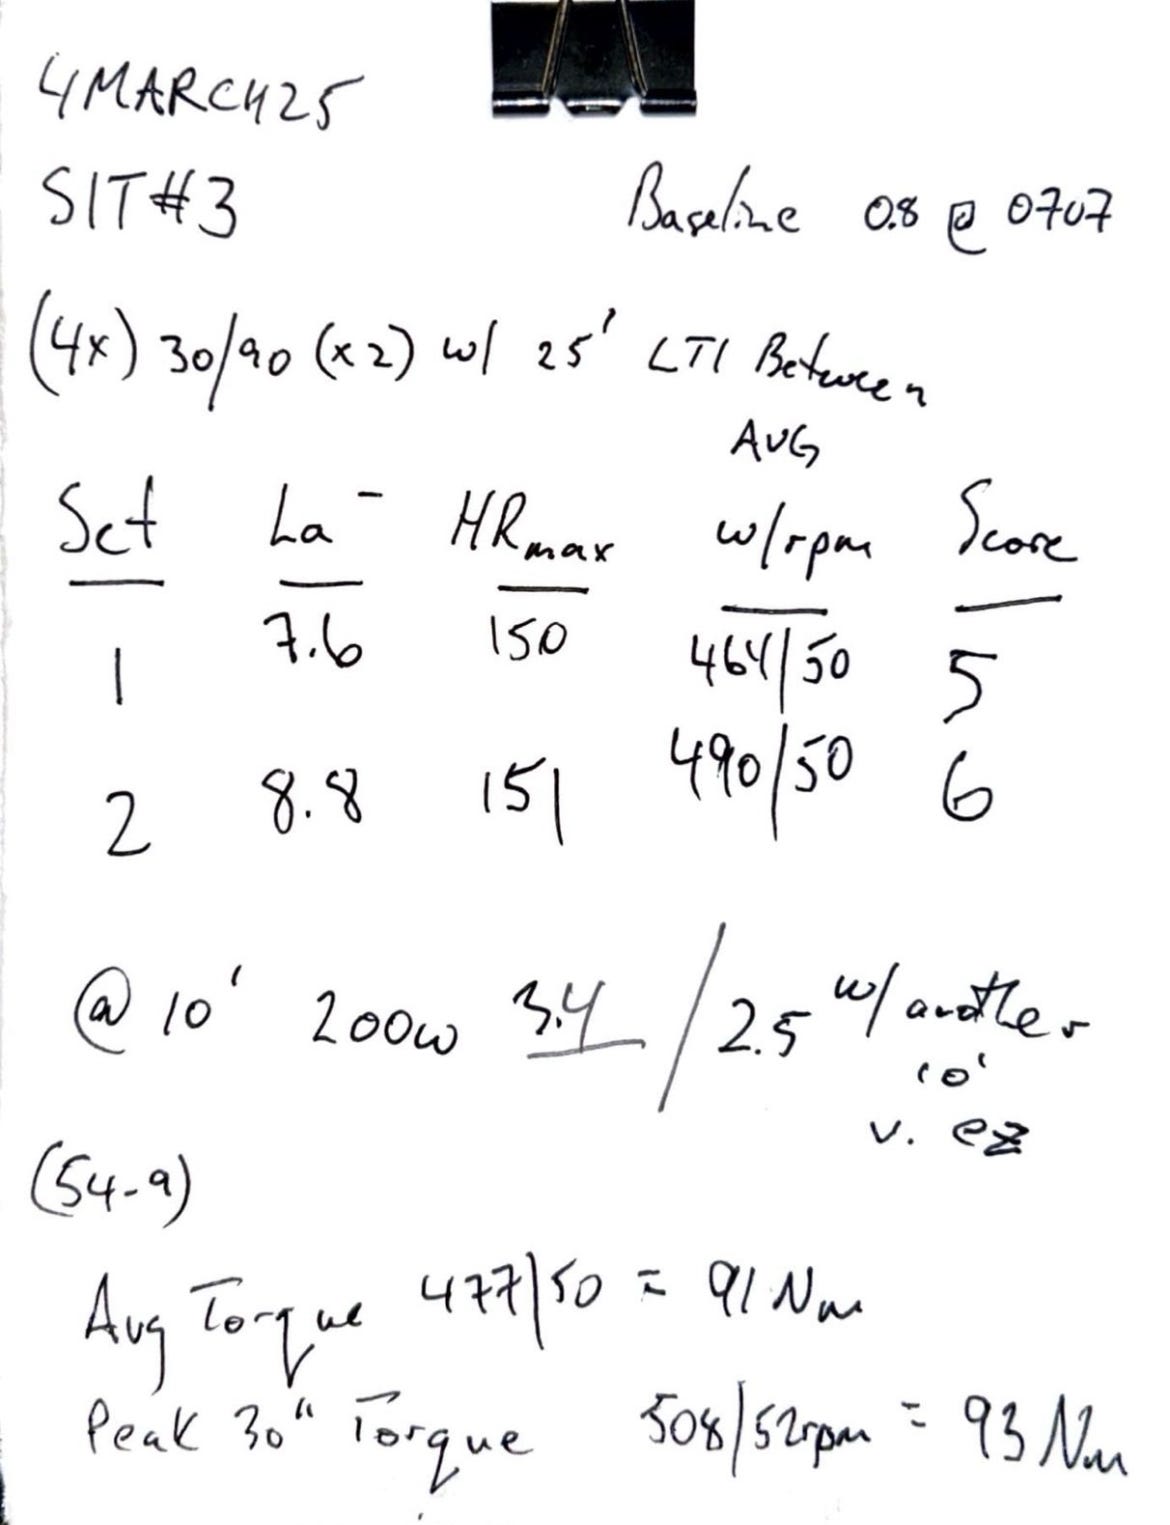 4MARCH25
SIT#3
Baseline 0.8 @ 0707
(4x) 30/90 (x2) w/ 25' LT1 Between
AVG
Set La⁻ HRmax w/rpm Score
1 7.6 150 464/50 5
2 8.8 151 490/50 6
@ 10' 200w 3.4 / 2.5 w/ another
10'
v. ez
(54-9)
Avg Torque 477/50 = 91 Nm
Peak 30" Torque 508/52rpm = 93 Nm